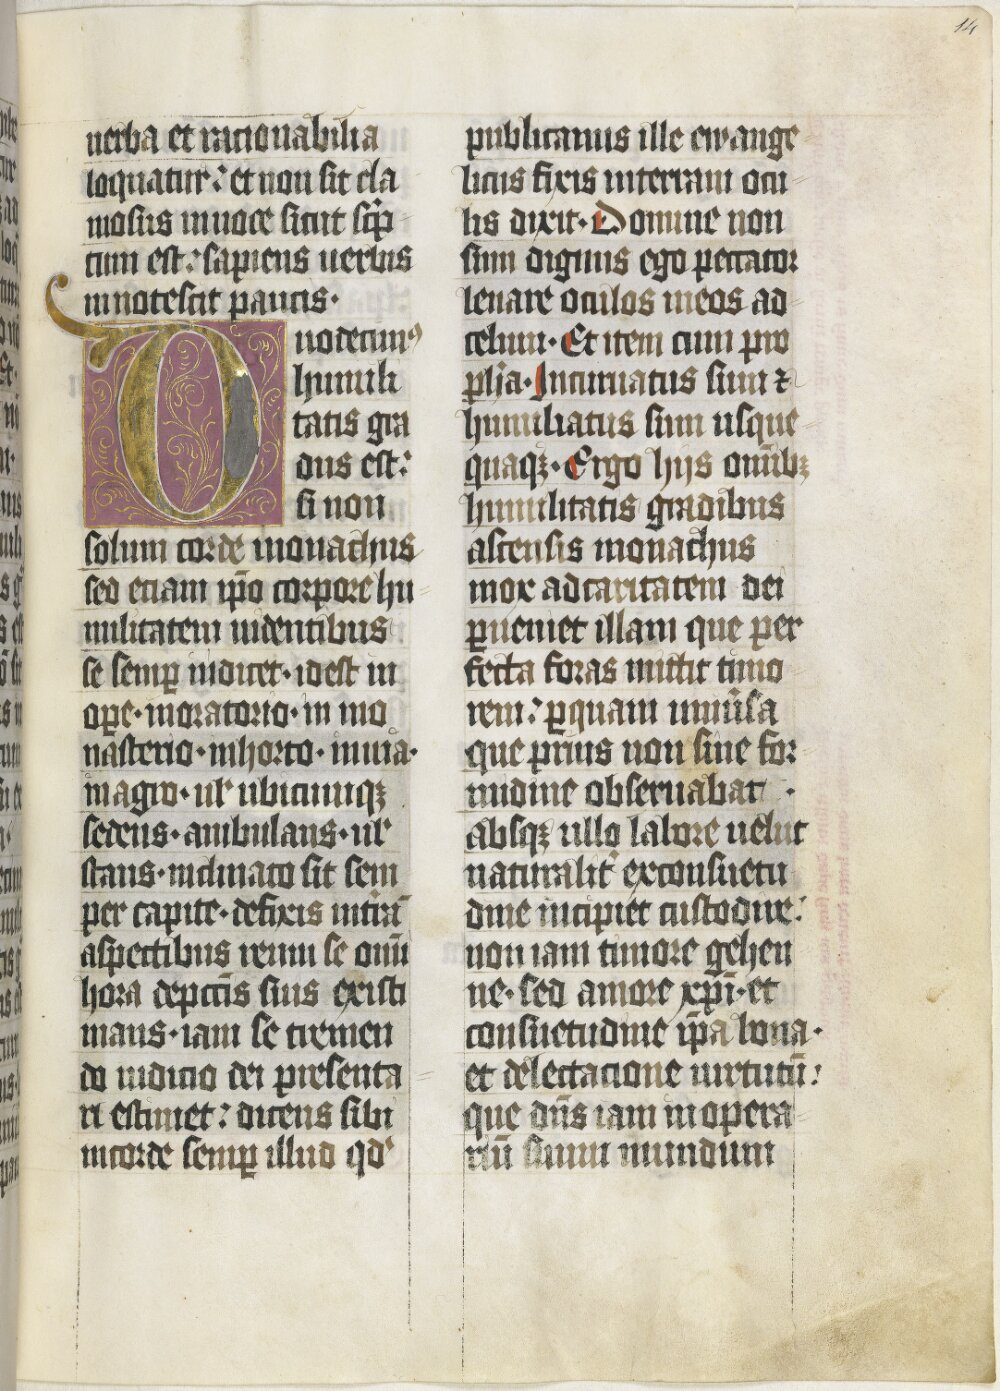 14
uerba et racionabilia
loquatur: et non sit cla
mosus inuoce sicut sc̄p
tum est: sapiens uerbis
innotescit paucis.
Duodecim⁹
humili
tatis gra
dus est:
si non
solum corde monachus
sed etiam ip̄o corpore hu
militatem uidentibus
se semꝑ indicet · idest in
oꝑe · inoratorio · in mo
nasterio · inhorto · inuia ·
inagro · ul' ubicumqꝫ
sedens · ambulans · ul'
stans · inclinato sit sem
per capite · defixis int̄rā
aspectibus reum se omī
hora depcc̄is suis existi
mans · iam se tremen
do iudicio dei presenta
ri estimet: dicens sibi
incorde semꝑ illud qd'
publicanus ille ewange
licus fixis interram ocu
lis dixit · Domine non
sum dignus ego peccator
leuare oculos meos ad
celum · Et item cum pro
ph̄a · Incuruatus sum ⁊
humiliatus sum usque
quaqꝫ · Ergo hijs omībꝫ
humilitatis gradibus
ascensis monachus
mox adcaritatem dei
ꝑueniet illam que per
fecta foras mittit timo
rem: ꝑquam uniūsa
que prius non sine for
midine obseruabat ·
absqꝫ ullo labore uelut
naturalit̄ exconsuetu
dine incipiet custodire:
non iam timore gehen
ne · sed amore xp̄i · et
consuetudine ip̄a bona ·
et delectacione uirtutū:
que dn̄s iam inopera
riū suum mundum